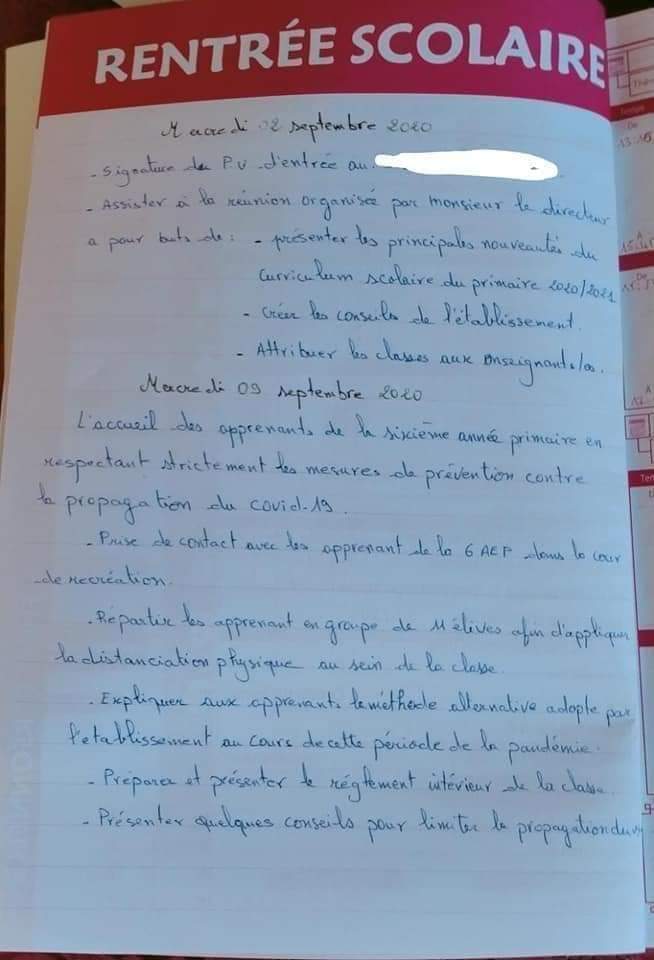 RENTRÉE SCOLAIRE
Mercredi 02 septembre 2020
- Signature du P.V d'entrée au
- Assister à la réunion organisée par monsieur le directeur
a pour buts de : - présenter les principales nouveautés du
Curriculum scolaire du primaire 2020/2021
- Créer les conseils de l'établissement.
- Attribuer les classes aux enseignants/es.
Mercredi 09 septembre 2020
L'accueil des apprenants de la sixième année primaire en
respectant strictement les mesures de prévention contre
la propagation du covid-19.
- Prise de contact avec les apprenant de la 6 AEP dans la cour
de recréation.
- Répartir les apprenant en groupe de 11 élèves afin d'appliquer
la distanciation physique au sein de la classe.
- Expliquer aux apprenants la méthode alternative adopte par
l'etablissement au cours de cette période de la pandémie.
- Préparer et présenter le règlement intérieur de la classe.
- Présenter quelques conseils pour limiter la propagation du